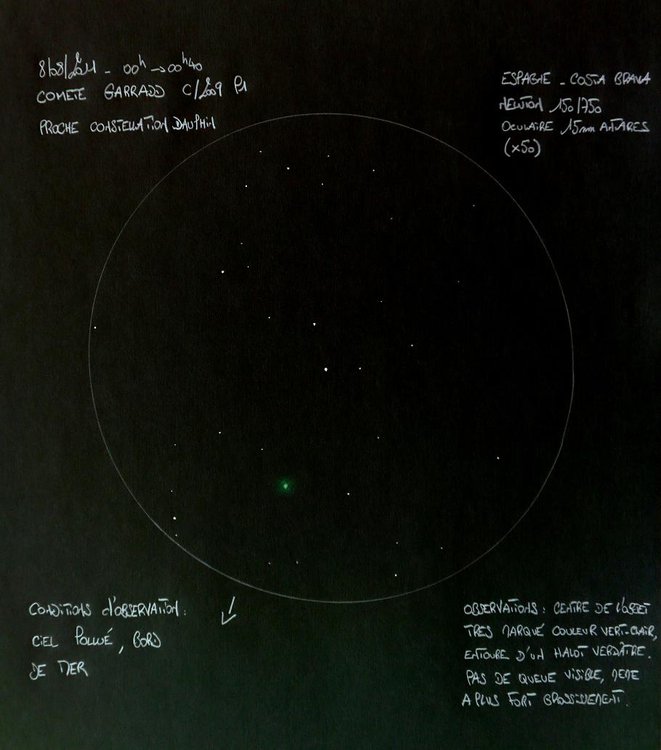 00h → 00h40
COMETE GARRADD C/2009 P1
PROCHE CONSTELLATION DAUPHIN
ESPAGNE - COSTA BRAVA
NEWTON 150/750
OCULAIRE 15mm ANTARES
(x50)
CONDITIONS d'OBSERVATION:
CIEL POLLUÉ, BORD
DE MER
OBSERVATIONS: CENTRE DE L'OBJET
TRES MARQUÉ COULEUR VERT-CLAIR,
ENTOURE D'UN HALOT VERDÂTRE.
PAS DE QUEUE VISIBLE, MEME
A PLUS FORT GROSSISSEMENT.